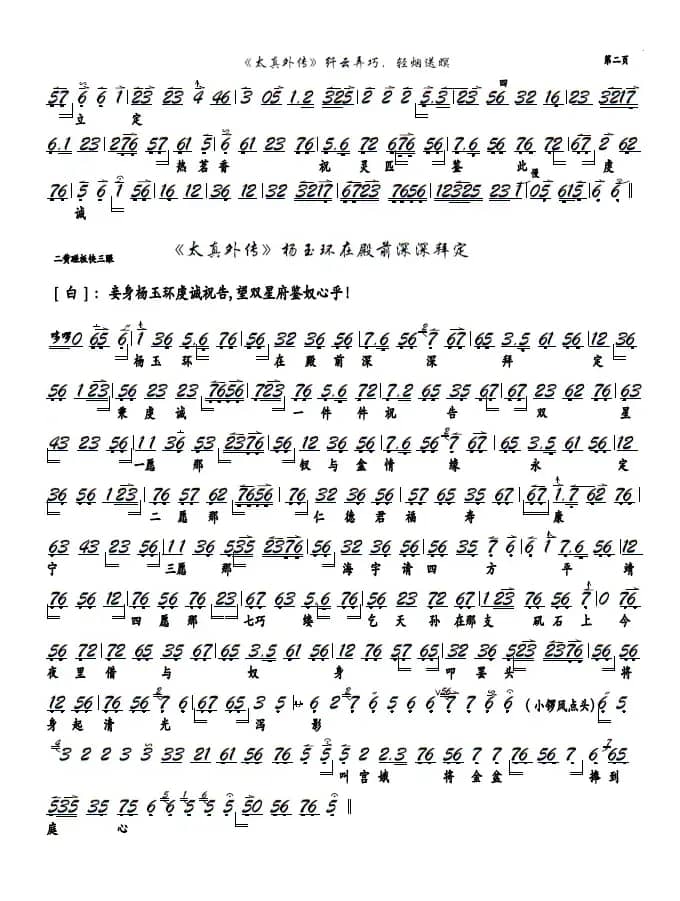 《太真外传》纤云弄巧，轻烟送暝 第二页
57 6 6 1 | 23 23 4 46 | 3 05 1.2 325 | 2 2 2 | 5.3 23 56 32 16 | 23 3217
立 定
6.1 23 | 276 57 61 5 | 6 61 23 76 | 5.6 72 676 56 | 7.6 56 72 76 | 72 67 2 67
热 茗 香 祝 灵 匹 鉴 此 慢 虔
76 | 5 6 1 56 | 16 16 12 32 3217 | 6723 76 7656 | 12325 23 1 | 05 615 6 6
诚
二黄碰板快三眼 《太真外传》杨玉环在殿前深深拜定
[ 白 ]：妾身杨玉环虔诚祝告，望双星府鉴奴心乎！
0 65 6 | 1 36 5.6 76 | 56 32 36 56 | 7.6 56 7 67 | 65 3.5 61 56 | 12 36
杨 玉 环 在 殿 前 深 深 拜 定
56 1 23 | 56 23 7656 | 723 76 5.6 72 | 7.2 65 35 67 | 67 23 62 76 | 63
秉 虔 诚 一 件 件 祝 告 双 星
43 23 56 | 11 36 53 2376 | 56 12 36 56 | 7.6 56 7 67 | 65 3.5 61 56 | 12
一愿 那 钗 与 盒 情 缘 永 定
36 56 1 23 | 76 57 62 7656 | 76 32 36 56 | 76 65 57 65 | 35 67 1.7 62 76
二 愿 那 仁 德 君 福 寿 康
63 43 23 56 | 11 36 535 2376 | 56 32 36 56 | 56 35 7 6 | 6 1 7.6 56 | 12
宁 三愿 那 海 宇 清 四 方 平 靖
36 56 76 | 57 62 76 5 | 56 23 72 67 | 1 23 76 56 7 | 0 76
四 愿 那 七 巧 缕 乞 天 孙 在 那 支 矶 石 上 今
56 72 | 72 65 35 67 | 65 35 67 56 | 76 56 36 523 | 2376 56
夜 里 借 与 奴 身 叩 罢 头 将
12 56 | 76 56 7 6 | 67 65 3 5 6 2 7 6 5 6 6 7 7 6 6 （小锣凤点头）6 5
身 起 清 光 泻 影
3 2 2 3 3 33 21 61 56 76 5 5 2 2.3 76 56 7 7 76 6 65
叫 宫 娥 将 金 盆 捧 到
535 35 75 6 6 5 5 5 50 56 76 5 ‖
庭 心